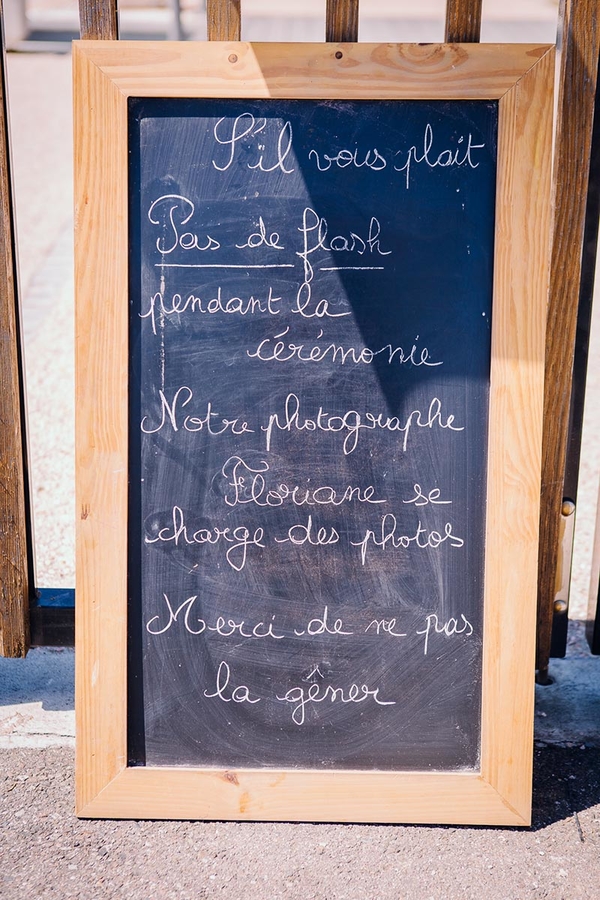 S'il vous plait
Pas de flash
pendant la
cérémonie
Notre photographe
Floriane se
charge des photos
Merci de ne pas
la gêner